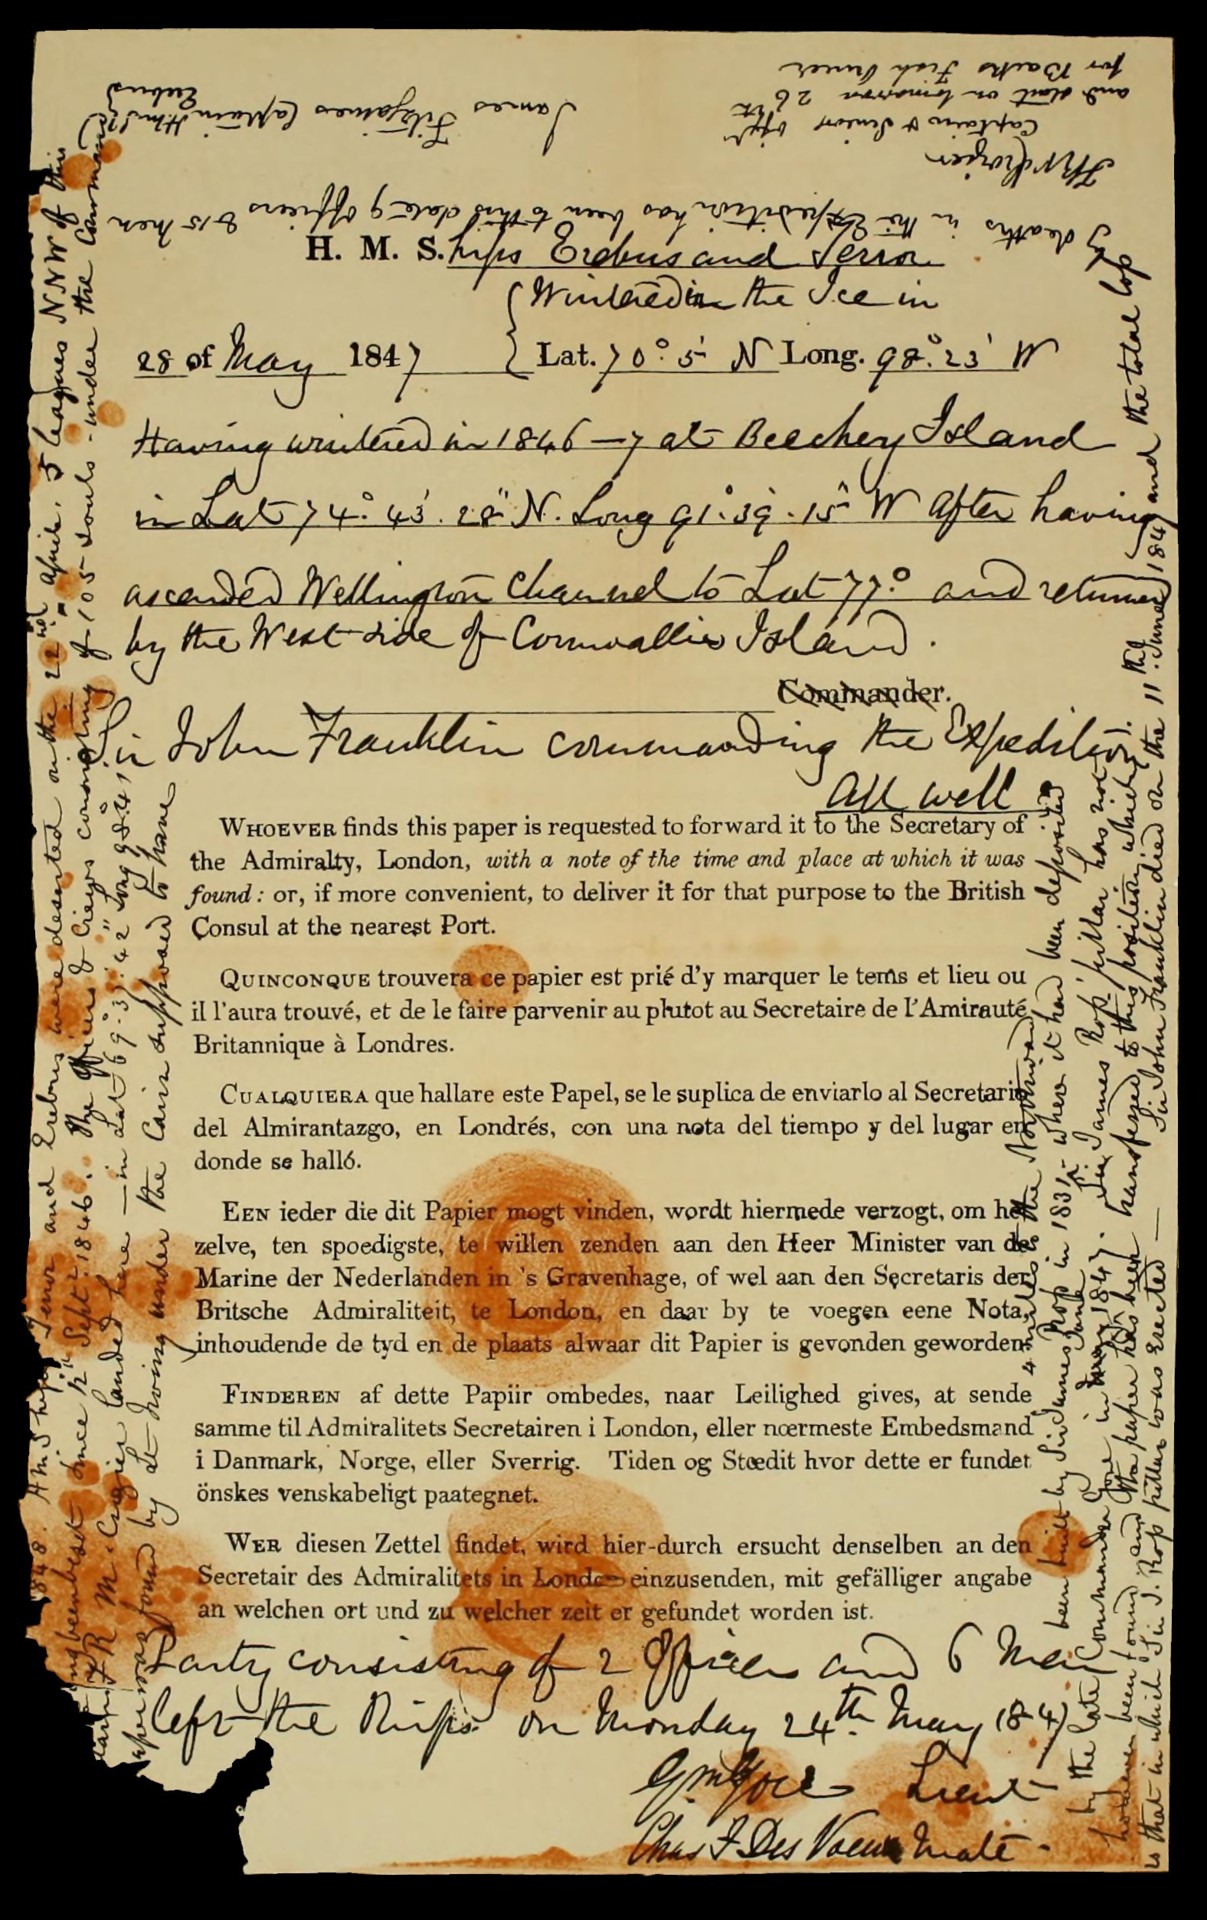 H. M. S.hips Erebus and Terror
Wintered in the Ice in
28 of May 1847 Lat. 70°. 5' N Long. 98°. 23' W
Having wintered in 1846–7 at Beechey Island
in Lat 74°. 43'. 28" N. Long 91°. 39'. 15" W After having
ascended Wellington Channel to Lat 77° and returned
by the West side of Cornwallis Island.
Commander.
Sir John Franklin commanding the Expedition
All well
WHOEVER finds this paper is requested to forward it to the Secretary of
the Admiralty, London, with a note of the time and place at which it was
found : or, if more convenient, to deliver it for that purpose to the British
Consul at the nearest Port.
QUINCONQUE trouvera ce papier est prié d'y marquer le tems et lieu ou
il l'aura trouvé, et de le faire parvenir au plutot au Secretaire de l'Amirauté
Britannique à Londres.
CUALQUIERA que hallare este Papel, se le suplica de enviarlo al Secretario
del Almirantazgo, en Londrés, con una nota del tiempo y del lugar en
donde se halló.
EEN ieder die dit Papier mogt vinden, wordt hiermede verzogt, om het
zelve, ten spoedigste, te willen zenden aan den Heer Minister van de
Marine der Nederlanden in 's Gravenhage, of wel aan den Secretaris der
Britsche Admiraliteit, te London, en daar by te voegen eene Nota,
inhoudende de tyd en de plaats alwaar dit Papier is gevonden geworden
FINDEREN af dette Papiir ombedes, naar Leilighed gives, at sende
samme til Admiralitets Secretairen i London, eller nœrmeste Embedsmand
i Danmark, Norge, eller Sverrig. Tiden og Stœdit hvor dette er fundet
önskes venskabeligt paategnet.
WER diesen Zettel findet, wird hier-durch ersucht denselben an den
Secretair des Admiralitets in London einzusenden, mit gefälliger angabe
an welchen ort und zu welcher zeit er gefundet worden ist.
Party consisting of 2 Officers and 6 Men
left the Ships on Monday 24th May 1847
Gm Gore Lieut
Chas F Des Voeux Mate
1848. HMShips Terror and Erebus were deserted on the 22nd April, 5 leagues NNW of this
ng been beset since 12th Septr 1846. The Officers & Crews consisting of 105 souls - under the Command
tain F. R. M. Crozier landed here — in Lat 69°. 37'. 42" Long 98°. 41'
aper was found by Lt Irving under the Cairn supposed to have
been built by Sir James Ross in 1831 – where it had been deposited
4 miles to the Northward
by the late Commander Gore in May 1847. Sir James Ross' pillar has not
June
however been found and the paper has been transferred to this position which
is that in which Sir J. Ross pillar was erected — Sir John Franklin died on the 11th June 1847 and the total loss
by deaths in the Expedition has been to this date 9 officers & 15 men
James Fitzjames Captain HMS
Erebus
F R M Crozier
Captain & Senior Offr
and start on tomorrow 26th
for Backs Fish River